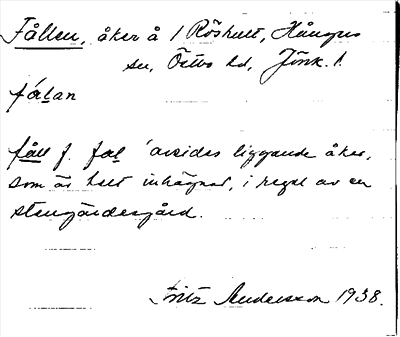 Fållen, åker å 1 Röshult, Hångers
sn, Östbo hd, Jönk. l.
fålan
fåll f. fål 'avsides liggande åker,
som är helt inhägnad, i regel av en
stengärdesgård.
Fritz Andersson 1938.